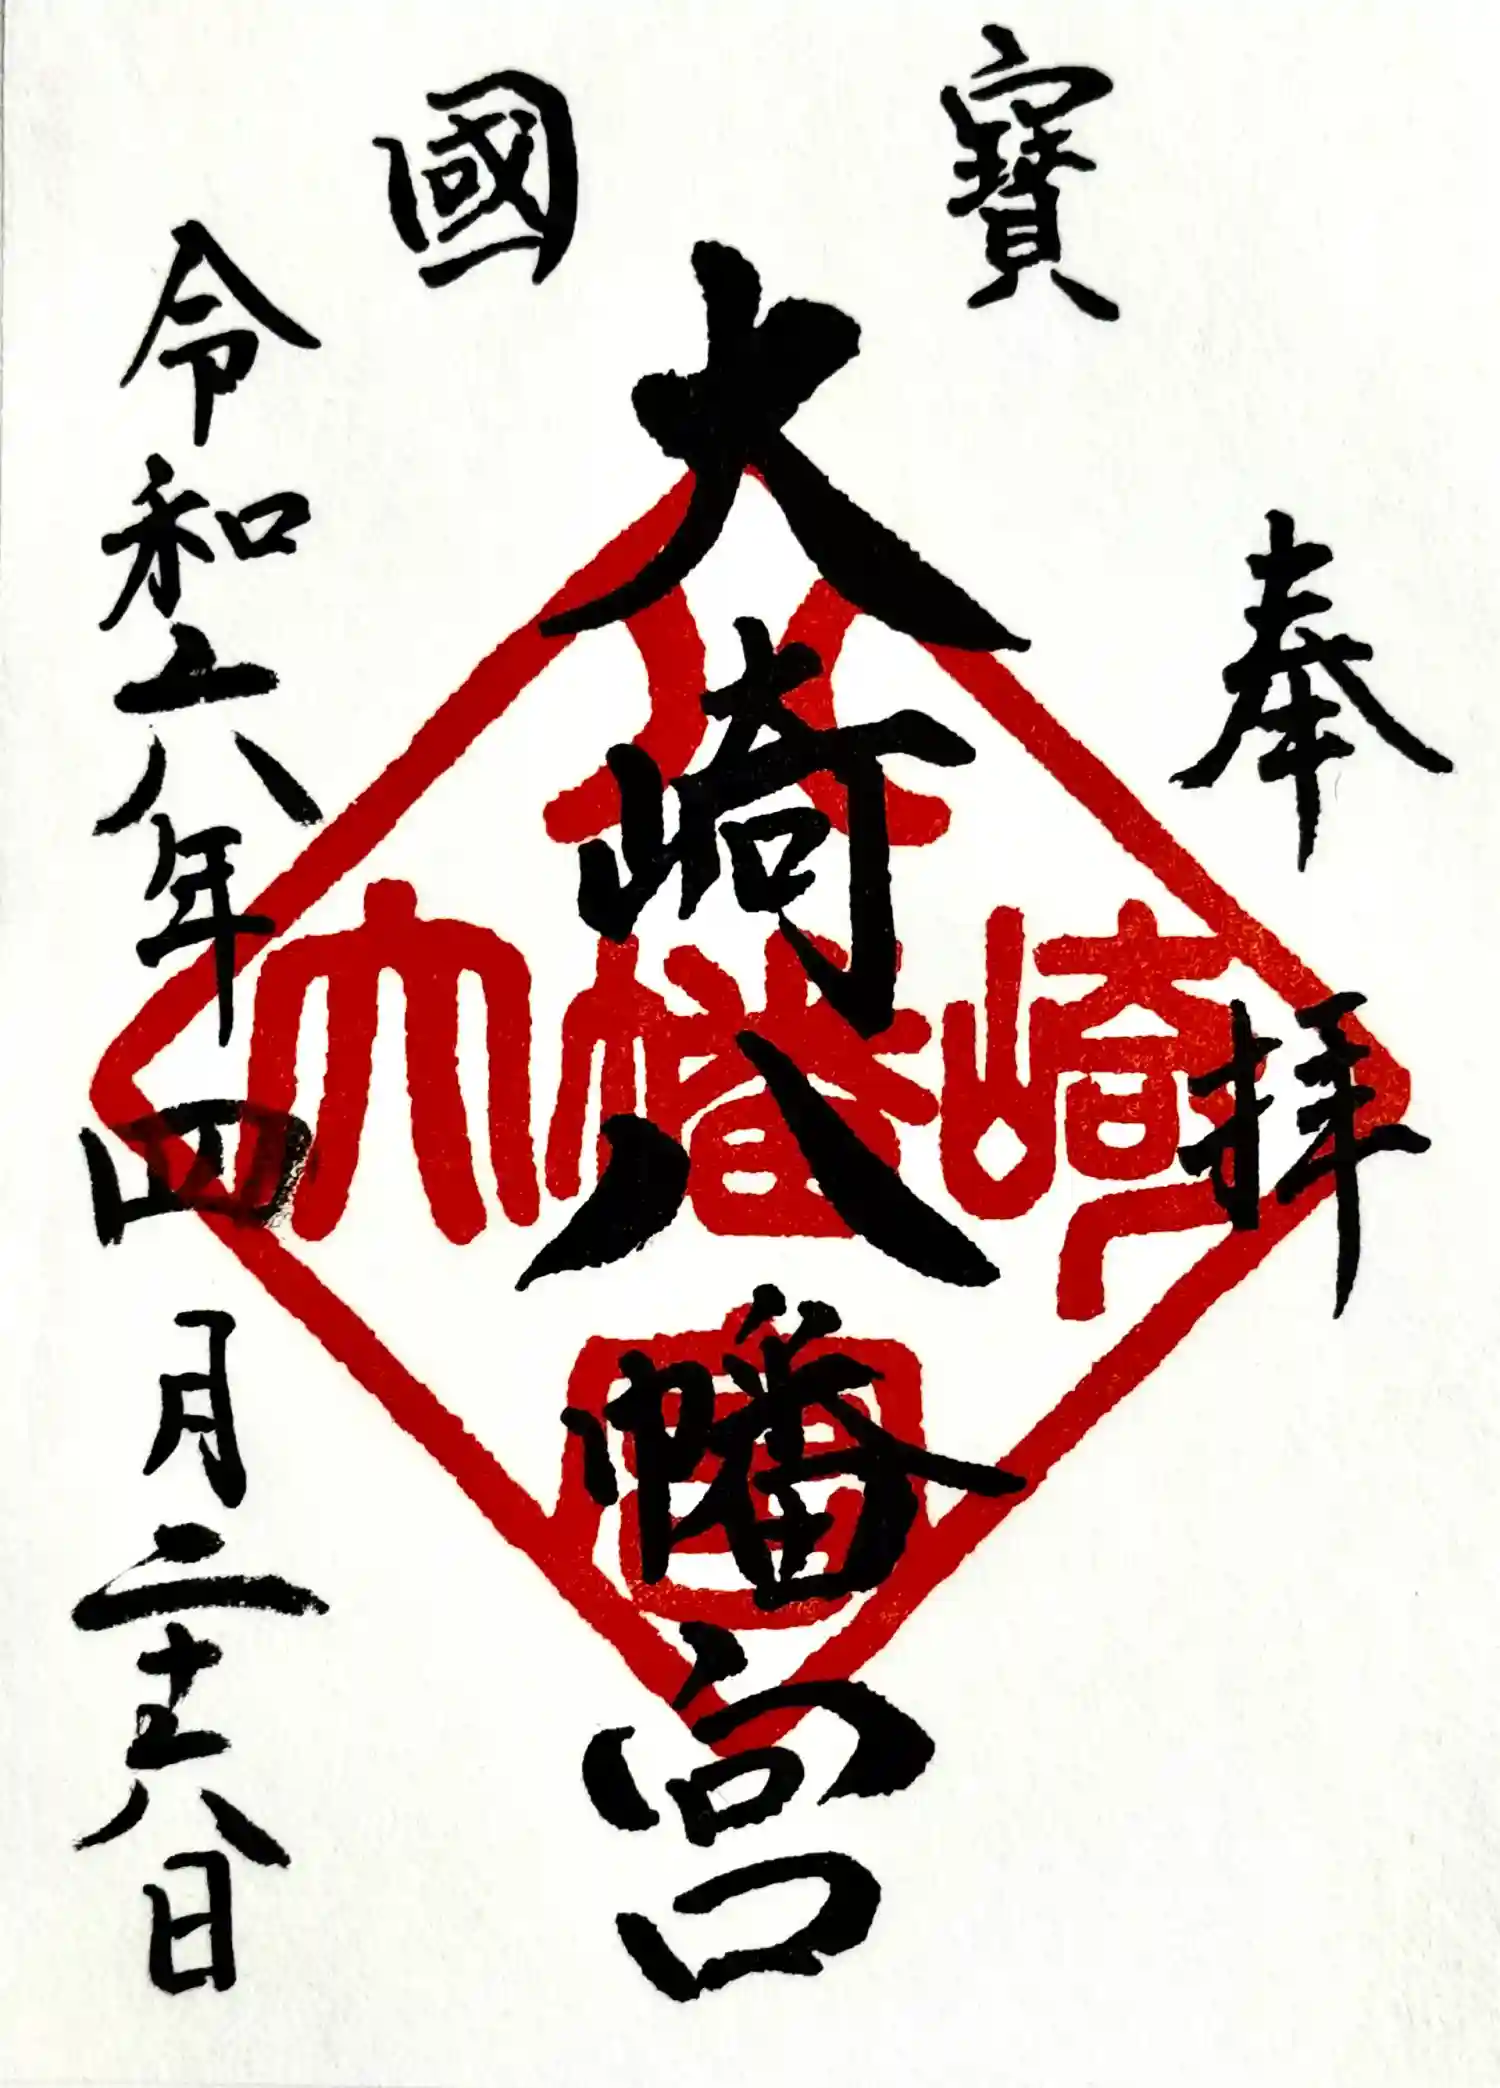 國寶
奉拝
大崎八幡宮
令和六年四月二十六日
大崎八幡宮